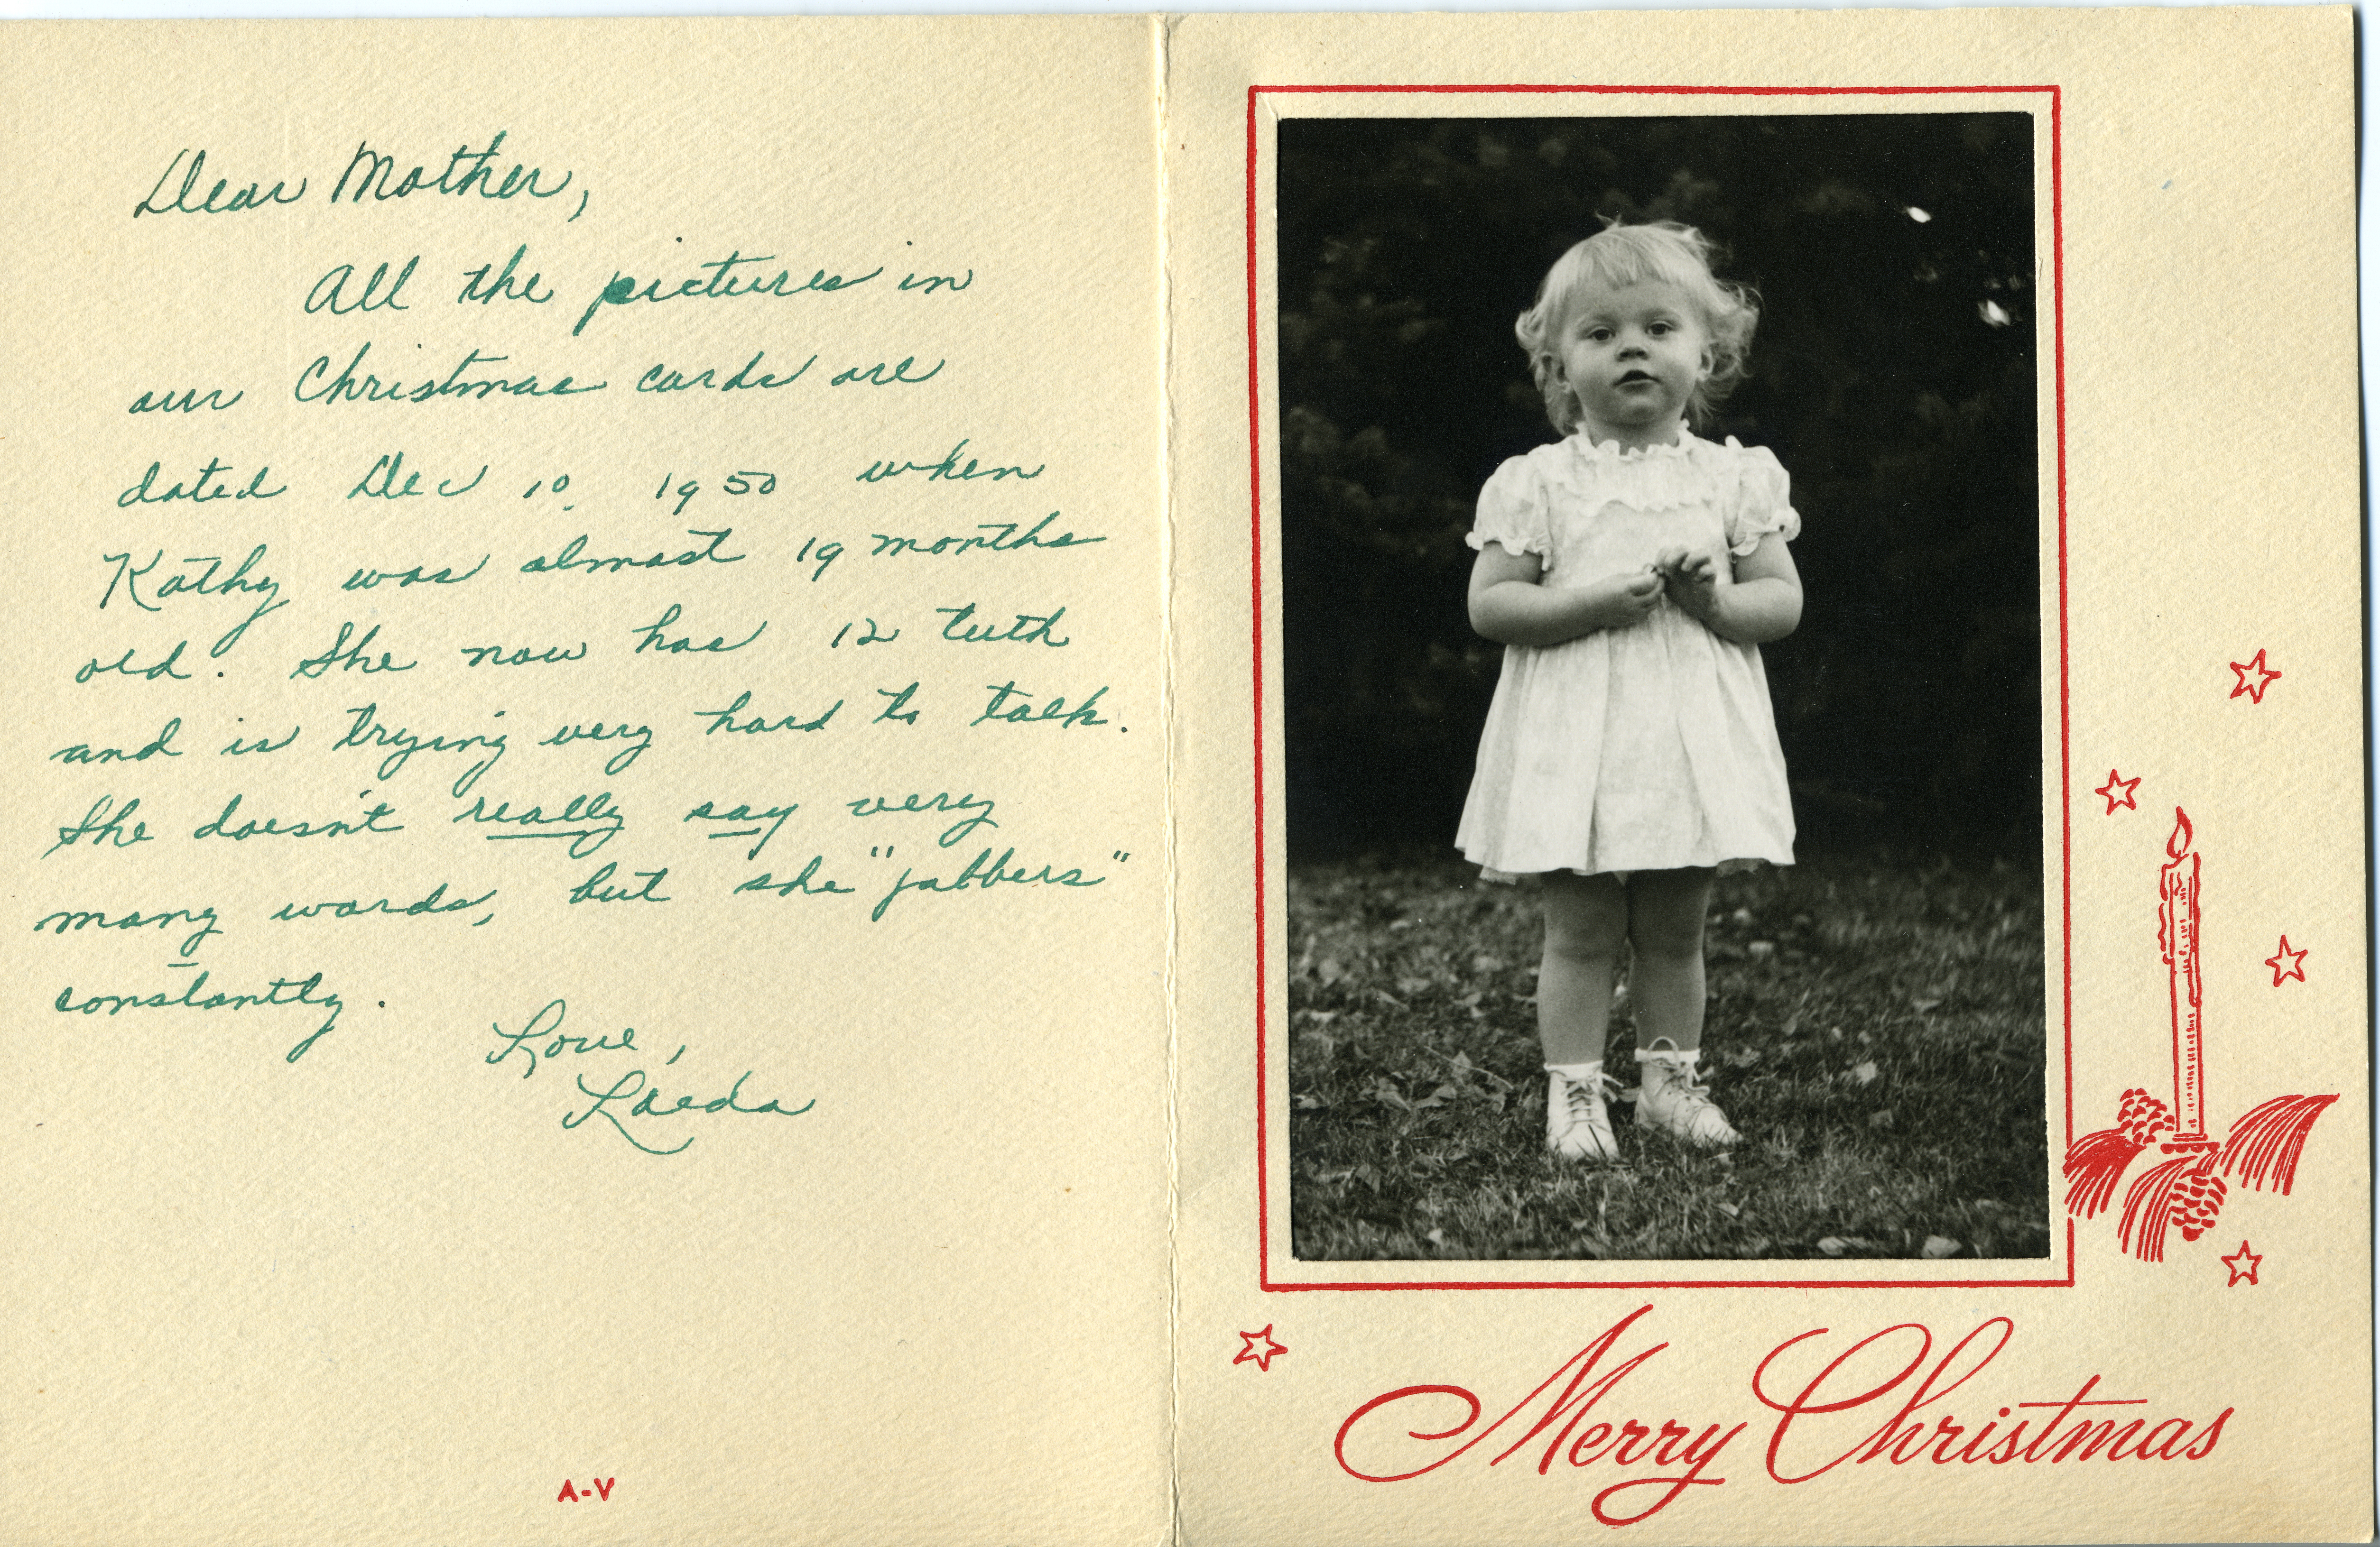 Dear Mother,
All the pictures in
our Christmas cards are
dated Dec 10, 1950 when
Kathy was almost 19 months
old. She now has 12 teeth
and is trying very hard to talk.
She doesn't really say very
many words, but she "jabbers"
constantly.
Love,
Loeda
A-V
Merry Christmas